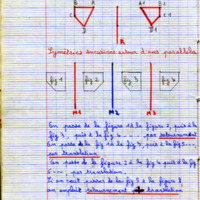 B A A1 B1
C C1
D D1
R
Symétries successives autour d'axes parallèles
fig 1 fig 2 fig 3 fig 4
M1 M2 M3
On passe de la figure 1 à la figure 2, puis à la
fig 3, puis à la fig 4 ... par retournement
On passe de la fig 1 à la fig 3, puis à la fig 5 ...
par translation.
On passe de la figure 2 à la fig 4 puis à la fig
6 ... par translation.
Si on veut passer de la fig 1 à la figure
on emploit retournement + translation